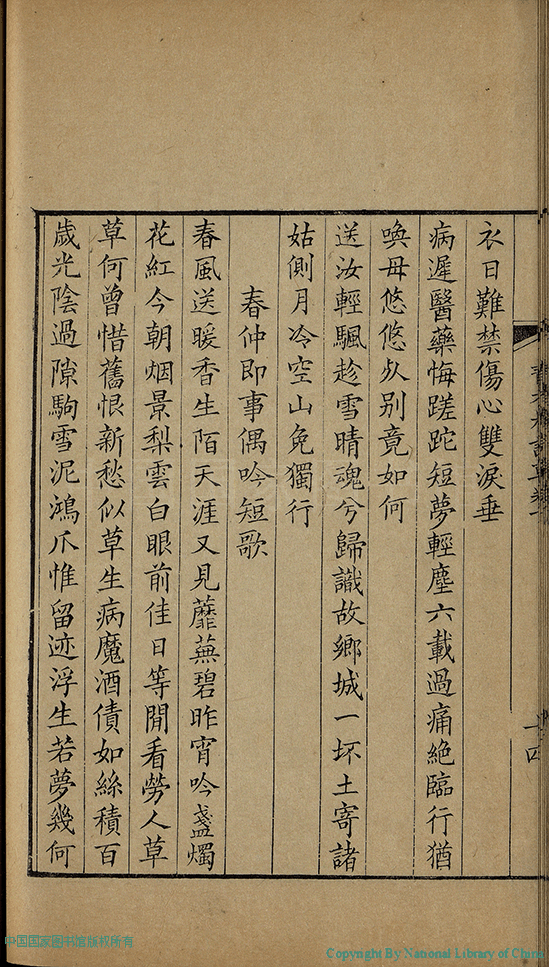 衣日難禁傷心雙淚垂
病遲醫藥悔蹉跎短夢輕塵六載過痛絶臨行猶
喚母悠悠乆别竟如何
送汝輕颿趁雪晴魂兮歸識故鄉城一坏土寄諸
姑側月冷空山免獨行
春仲即事偶吟短歌
春風送暖香生陌天涯又見蘼蕪碧昨宵吟盞燭
花紅今朝烟景梨雲白眼前佳日等閒看勞人草
草何曾惜舊恨新愁似草生病魔酒債如絲積百
歲光陰過隙駒雪泥鴻爪惟留迹浮生若夢幾何
十四
中国国家图书馆版权所有
Copyright By National Library of China